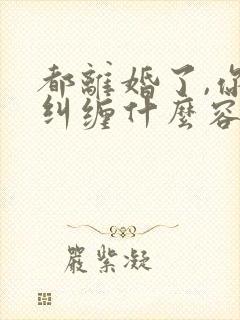 都離婚了,你
纠缠什麼容
嚴紫凝